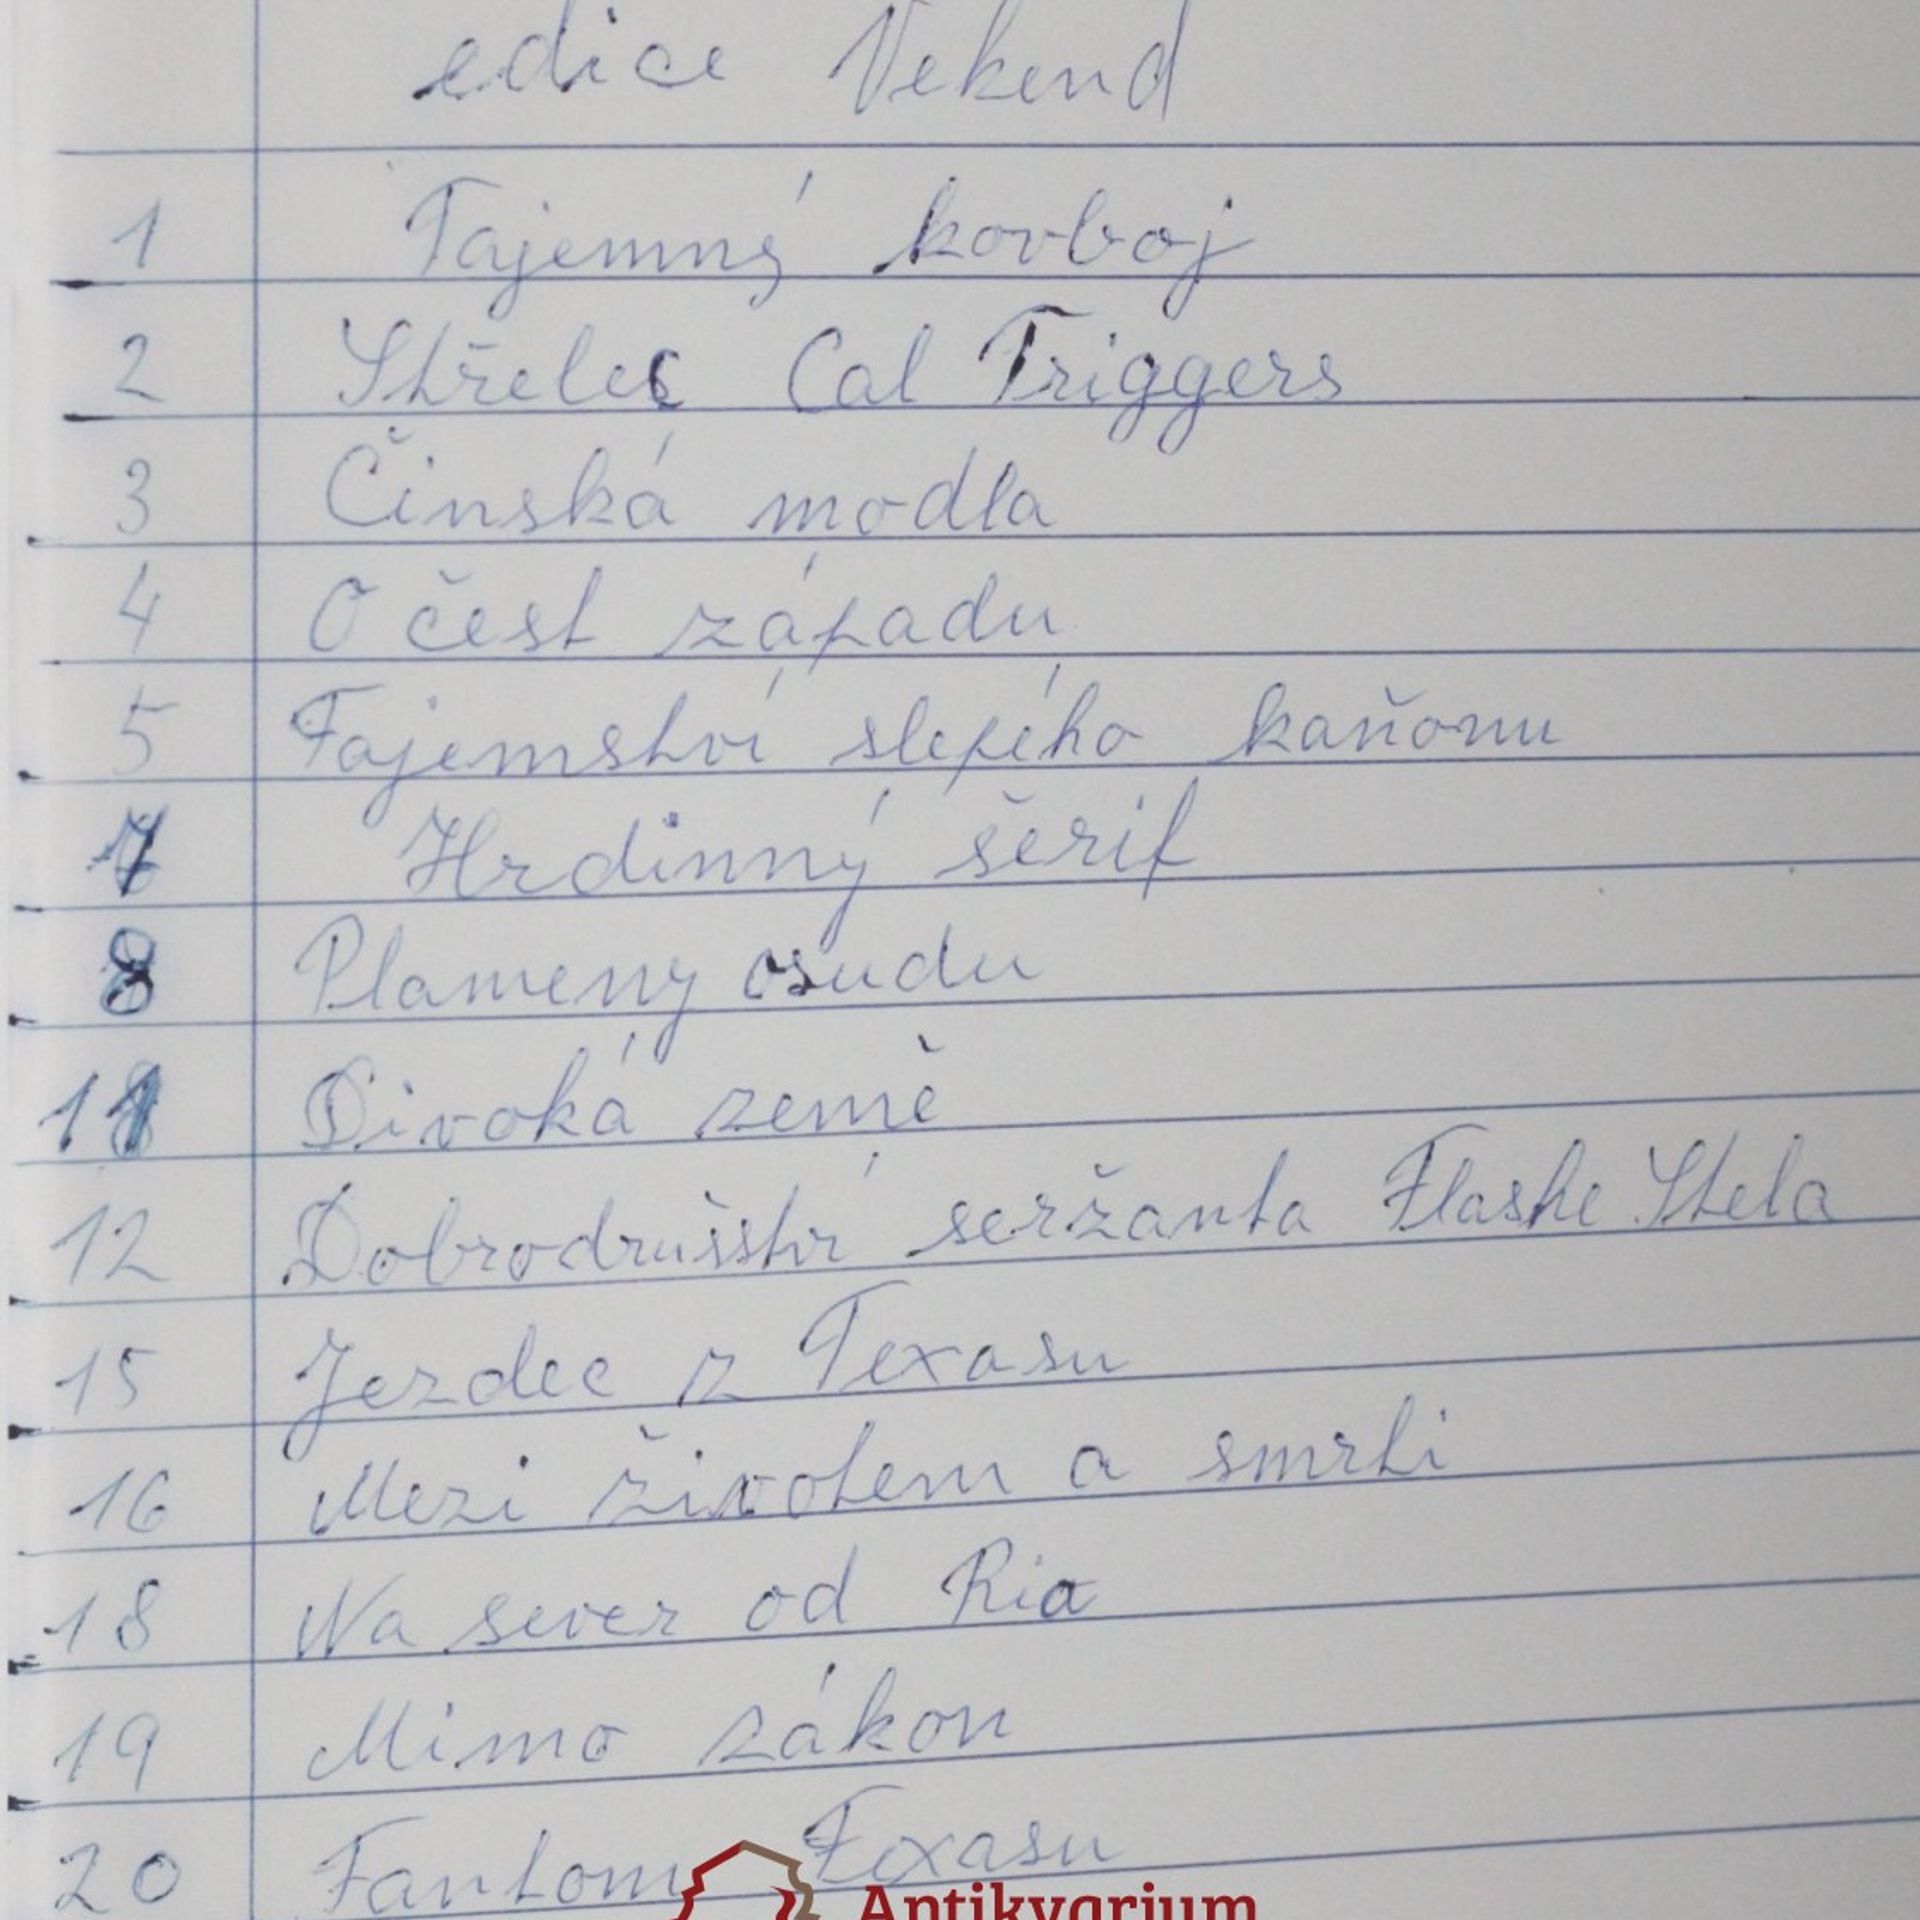 edice Vekend
1 Tajemný kovboj
2 Střelec Cal Triggers
3 Činská modla
4 O čest západu
5 Tajemství slepého kaňonu
7 Hrdinný šerif
8 Plameny osudu
11 Divoká země
12 Dobrodrušství seržanta Flashe Stela
15 Jezdec z Texasu
16 Mezi životem a smrti
18 Na sever od Ria
19 Mimo zákon
20 Fantom Texasu
Antikvarium